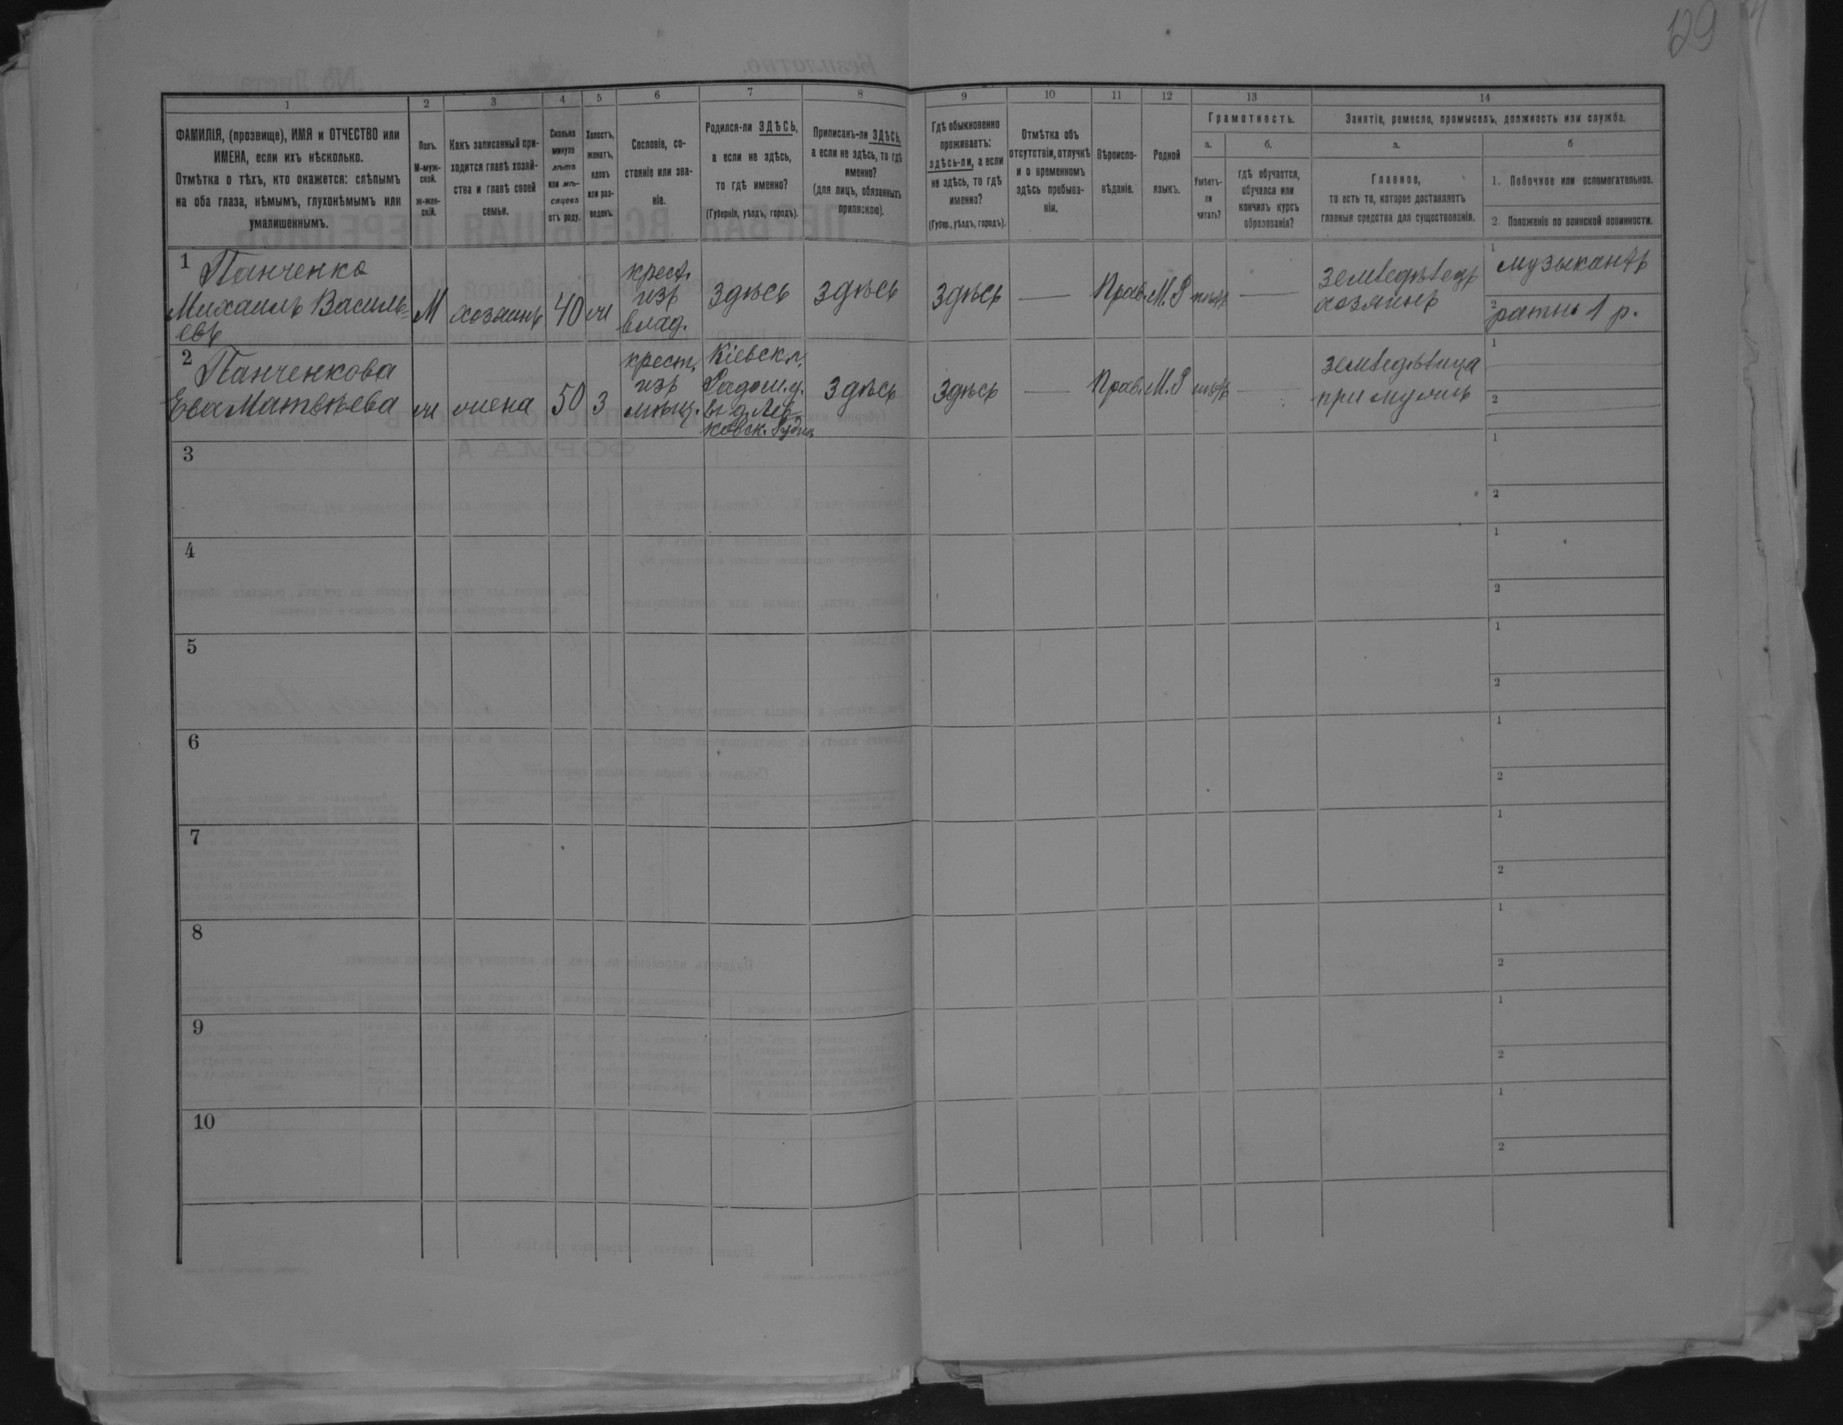 129
1 2 3 4 5 6 7 8 9 10 11 12 13 14
ФАМИЛІЯ, (прозвище), ИМЯ и ОТЧЕСТВО или
ИМЕНА, если ихъ нѣсколько.
Отмѣтка о тѣхъ, кто окажется: слѣпымъ
на оба глаза, нѣмымъ, глухонѣмымъ или
умалишеннымъ.
Полъ.
М-муж-
ской.
ж-жен-
скій.
Какъ записанный при-
ходится главѣ хозяй-
ства и главѣ своей
семьи.
Сколько
минуло
лѣтъ
или мѣ-
сяцевъ
отъ роду.
Холостъ,
женатъ,
вдовъ
или раз-
веденъ.
Сословіе, со-
стояніе или зва-
ніе.
Родился-ли ЗДѢСЬ,
а если не здѣсь,
то гдѣ именно?
(Губернія, уѣздъ, городъ).
Приписанъ-ли ЗДѢСЬ,
а если не здѣсь, то гдѣ
именно?
(для лицъ, обязанныхъ
припискою).
Гдѣ обыкновенно
проживаетъ:
здѣсь-ли, а если
не здѣсь, то гдѣ
именно?
(Губер., уѣздъ, городъ).
Отмѣтка объ
отсутствіи, отлучкѣ
и о временномъ
здѣсь пребыва-
ніи.
Вѣроиспо-
вѣданіе.
Родной
языкъ.
Грамотность.
а.
Умѣетъ-
ли
читать?
б.
гдѣ обучается,
обучался или
кончилъ курсъ
образованія?
Занятіе, ремесло, промыселъ, должность или служба.
а.
Главное,
то есть то, которое доставляетъ
главныя средства для существованія.
б
1. Побочное или вспомогательное.
2. Положеніе по воинской повинности.
1 Панченко
Михаилъ Василь-
евъ
М
хозяинъ
40
ж
крест.
изъ
влад.
здѣсь
здѣсь
здѣсь
—
Прав.
М.Р
нѣтъ
—
земледѣлецъ
хозяинъ
1 музыкантъ
2 ратн. 1 р.
2 Панченкова
Ева Матвѣева
ж
жена
50
З
крест.
изъ
мѣщ.
Кіевск. г.
Радом. у.
здѣсь
здѣсь
—
Прав.
М.Р
нѣтъ
—
земледѣлица
при мужѣ
1
2
3
1
2
4
1
2
5
1
2
6
1
2
7
1
2
8
1
2
9
1
2
10
1
2